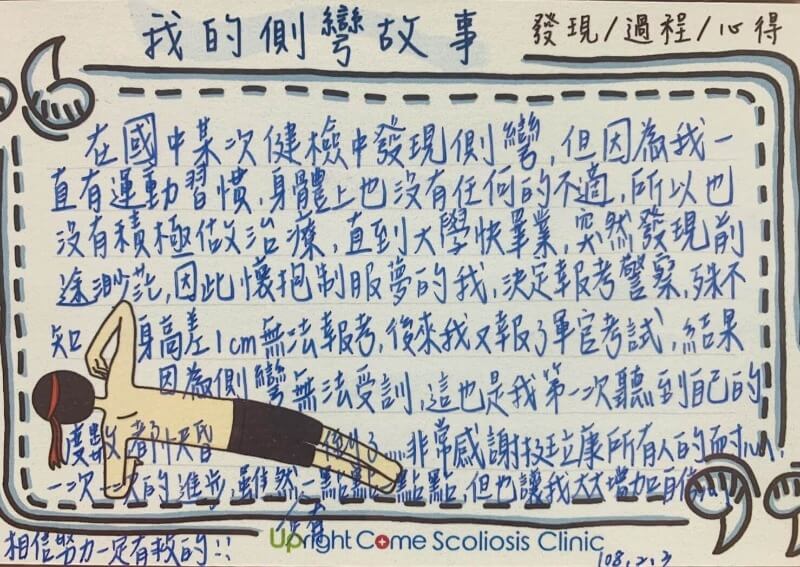 我的側彎故事
發現/過程/心得
在國中某次健檢中發現側彎,但因為我一
直有運動習慣,身體上也沒有任何的不適,所以也
沒有積極做治療,直到大學快畢業,突然發現前
途渺茫,因此懷抱制服夢的我,決定報考警察,殊不
知 身高差1cm無法報考,後來我又報了軍官考試,結果
因為側彎無法受訓,這也是我第一次聽到自己的
度數都快昏 倒了....非常感謝技玨康所有人的耐心,
一次一次的進步,雖然一點點一點點,但也讓我大大增加自信
相信努力一定有救的!!
Upright Come Scoliosis Clinic
108.2.3